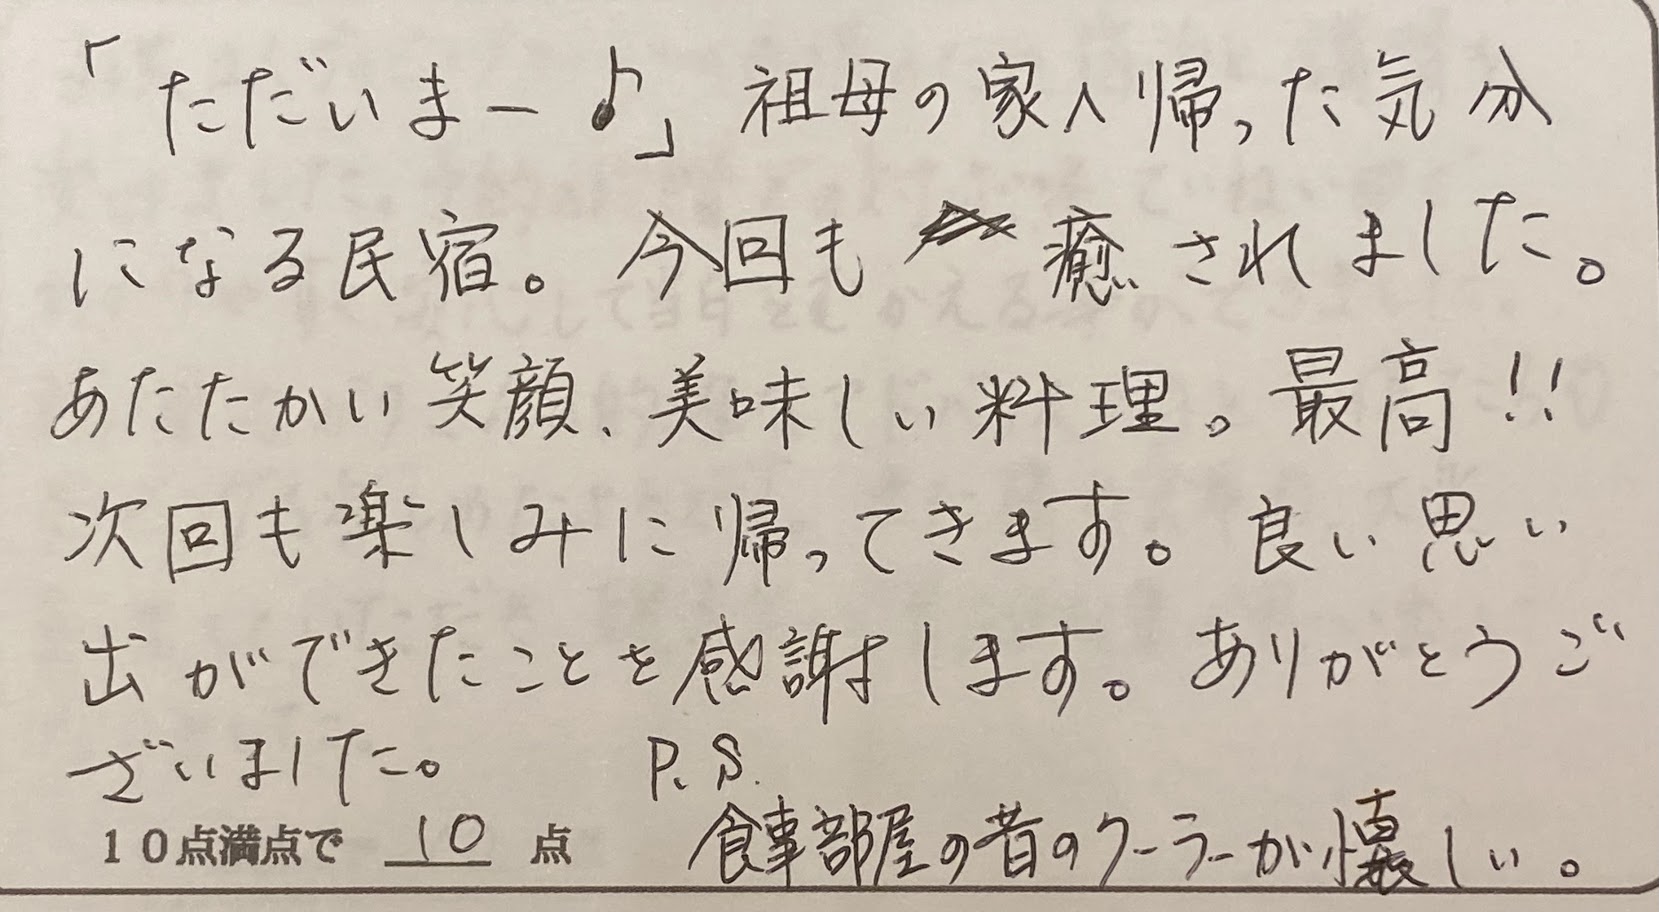 「ただいまー♪」祖母の家へ帰った気分
になる民宿。今回も癒されました。
あたたかい笑顔、美味しい料理。最高!!
次回も楽しみに帰ってきます。良い思い
出ができたことを感謝します。ありがとうご
ざいました。 P.S.
10点満点で 10 点 食事部屋の昔のクーラーが懐しい。